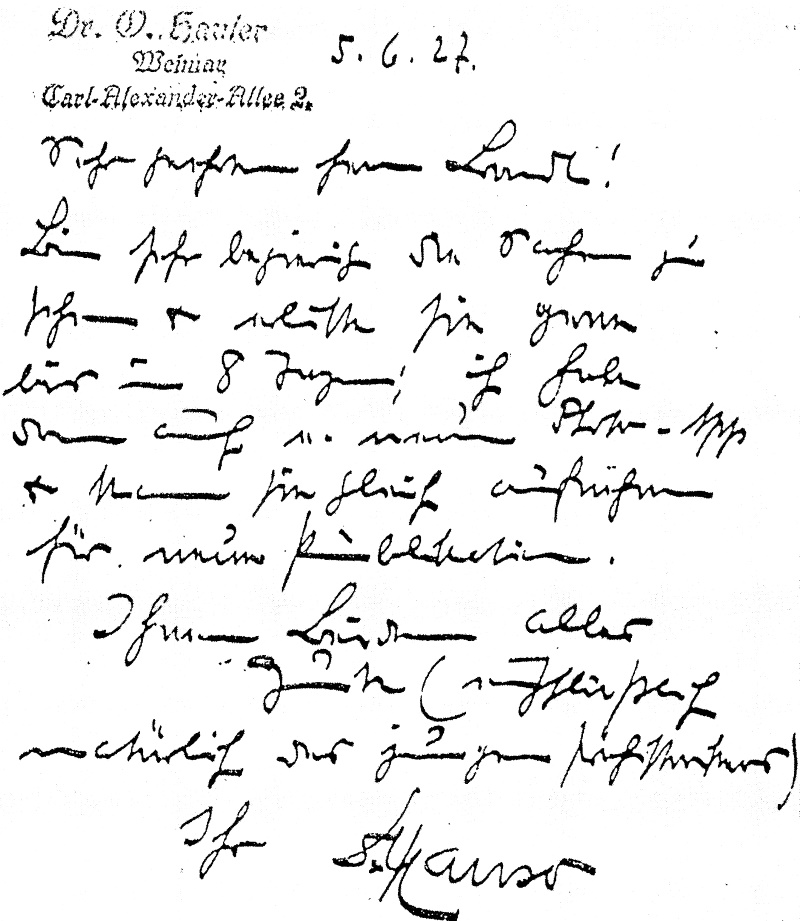 Dr. O. Hauser
Weimar
Carl-Alexander-Allee 2.
5. 6. 27.
Sehr geehrter Herr Brandt!
Bin sehr begierig die Sachen zu
sehen + erbitte sie gerne
bis in 8 Tagen; ich habe
dann auch m. neuen Photo-App
+ kann sie gleich aufnehmen
für neue Publikation.
Ihnen Beiden alles
Gute (einschließlich
natürlich des jungen
Ihr O. Hauser